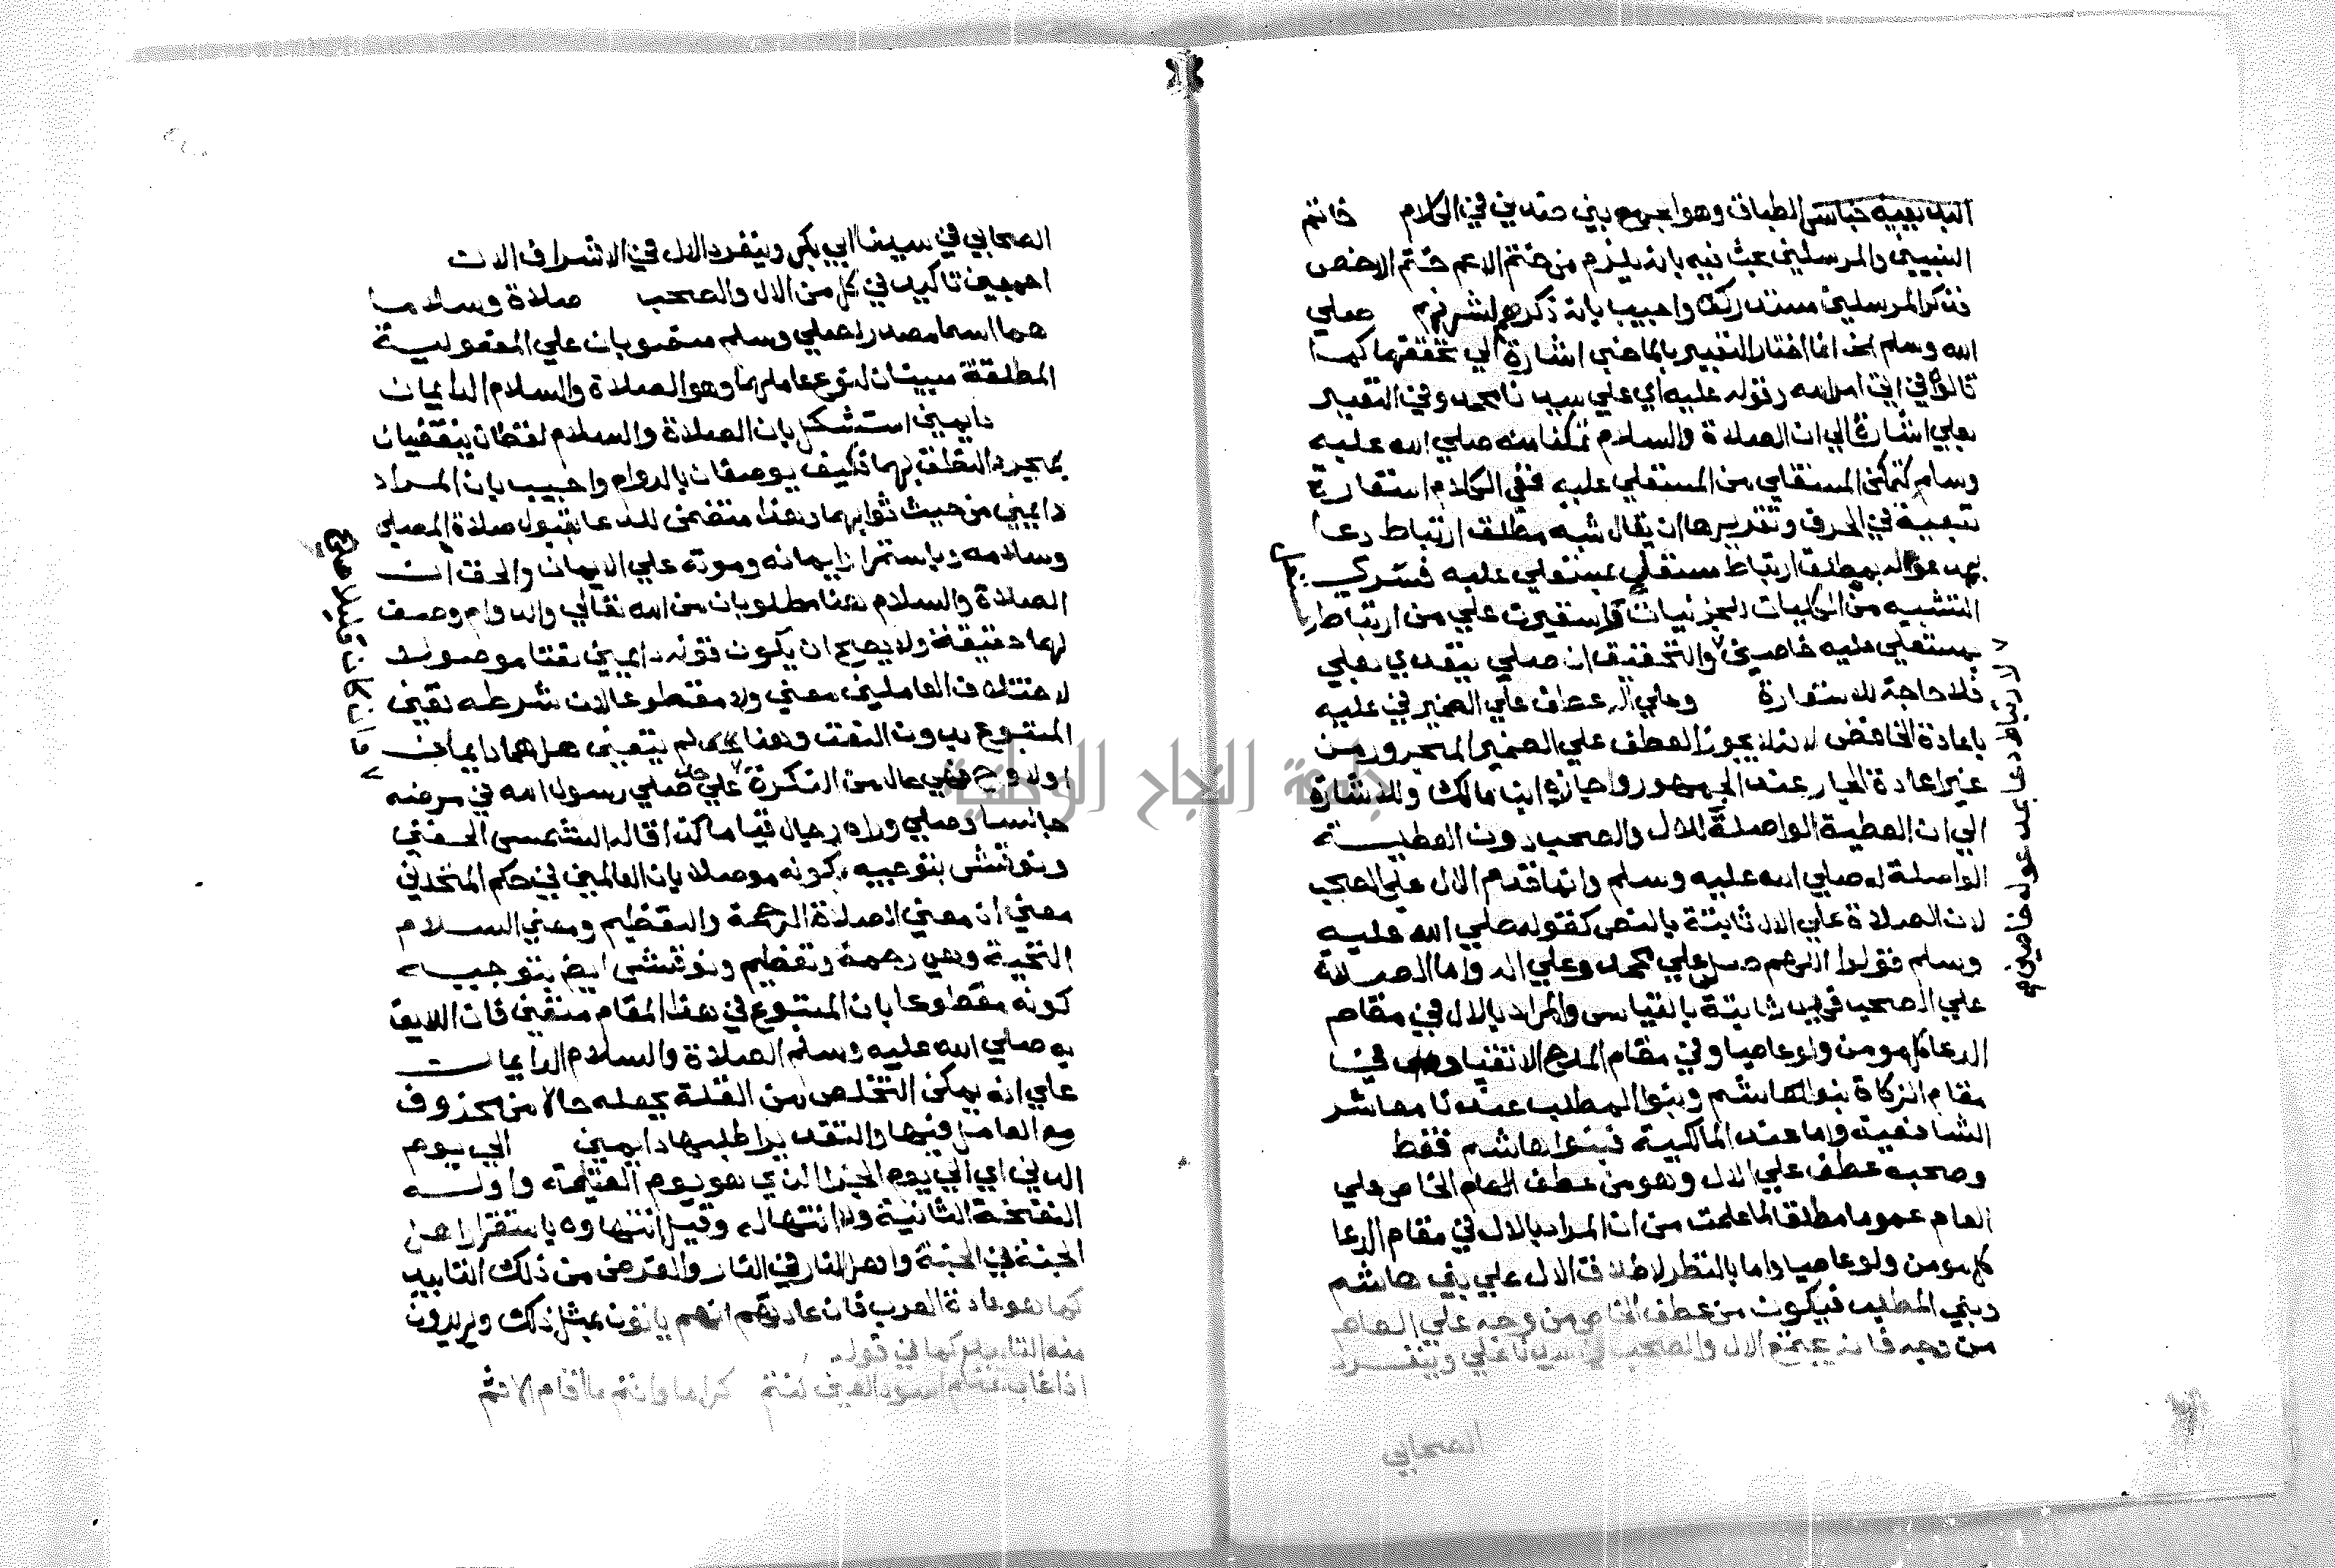 البديعية جناس الطباق وهو الجمع بين ضدين في الكلام خاتم
النبيين والمرسلين بحث فيه بانه يلزم من ختم الاعم ختم الاخص
فذكر المرسلين مستدرك واجيب بانه ذكرهم لشرفهم صلي
الله وسلم الخ انما اختار التعبير بالماضي اشارة الي تحققهما كما
قالوا في اتي امر الله وقوله عليه اي علي سيدنا محمد وفي التعبير
بعلي اشارة الي ان الصلاة والسلام تمكنا منه صلي الله عليه
وسلم كتمكن المستعلي من المستعلي عليه ففي الكلام استعارة
تبعية في الحرف وتقديرها ان يقال شبه مطلق ارتباط دعا
بمدعو له بمطلق ارتباط مستعلي بمستعلي عليه فسري
التشبيه من الكليات للجزئيات فاستعيرت علي من ارتباط
بمستعلي عليه خاصين والتحقيق ان صلي يتعدي بعلي
فلا حاجة للاستعارة وعلي اله عطف علي الضمير في عليه
باعادة الخافض لانه لا يجوز العطف علي الضمير المجرور من
غير اعادة الجار عند الجمهور واجازه ابن مالك وللاشارة
الي ان العطية الواصلة للال والصحب دون العطية
الواصلة له صلي الله عليه وسلم وانما قدم الال علي الصحب
لان الصلاة علي الال ثابتة بالنص كقوله صلي الله عليه
وسلم قولوا اللهم صل علي محمد وعلي اله واما الصلاة
علي الصحب فهي ثابتة بالقياس والمراد بالال في مقام
الدعا كل مومن ولو عاصيا وفي مقام المدح الاتقيا وفي
مقام الزكاة بنوا هاشم وبنوا المطلب عندنا معاشر
الشافعية واما عند المالكية فبنوا هاشم فقط
وصحبه عطف علي الال وهو من عطف العام الخاص علي
العام عموما مطلقا لما علمت من ان المراد بالال في مقام الدعا
كل مومن ولو عاصيا واما بالنظر لاطلاق الال علي بني هاشم
وبني المطلب فيكون من عطف الخاص من وجه علي العام
من وجه فانه يجتمع الال والصحب في سيدنا علي وينفرد
الصحابي
لارتباط دعا بمدعو له خاصين
الصحابي في سيدنا ابي بكر وينفرد الال في الاشراف الان
اجمعين تاكيد في كل من الال والصحب صلاة وسلاما
هما اسما مصدر لصلي وسلم منصوبان علي المفعولية
المطلقة مبينان لنوع عاملهما وهو الصلاة والسلام الدايمان
دايمين استشكل بان الصلاة والسلام لفظان ينقضيان
بمجرد النطق بهما فكيف يوصفان بالدوام واجيب بان المراد
دايمين من حيث ثوابهما وهذا متضمن للدعا بقبول صلاة المصلي
وسلامه وباستمرار ايمانه وموته علي الايمان والحق ان
الصلاة والسلام هنا مطلوبان من الله تعالي والدوام وصف
لهما حقيقة ولا يصح ان يكون قوله دايمين نعتا موصولا
لاختلاف العاملين معني ولا مقطوعا لان شرطه تعين
المتبوع بدون النعت وهنا لم يتعين هل هما دايمان
اولا ومجي حال من النكرة علي حد صلي رسول الله في مرضه
جالسا وصلي وراه رجال قياما كذا قاله الشمس الحفني
ونوقش بتوجيه كونه موصلا بان العاملين في حكم المتحدين
معني اذ معني الصلاة الرحمة والتعظيم ومعني السلام
التحية وهي رحمة وتعظيم ونوقش ايض بتوجيه
كونه مقطوعا بان المتبوع في هذا المقام متعين فان اللايق
به صلي الله عليه وسلم الصلاة والسلام الدايمان
علي انه يمكن التخلص من القلة بجعله حالا من محذوف
مع العامل فيها والتقدير اطلبها دايمين الي يوم
الدين اي الي يوم الجزا الذي هو يوم القيامة واوله
النفخة الثانية ولا انتها له وقيل انتهاوه باستقرار اهل
الجنة في الجنة واهل النار في النار والغرض من ذلك التابيد
كما هو عادة العرب فان عادتهم انهم ياتون بمثل ذلك ويريدون
منه التابيد كما في قوله
اذا غاب عنكم اسود العين كنتم كراما وانتم ما اقام الائم
جامعة النجاح الوطنية